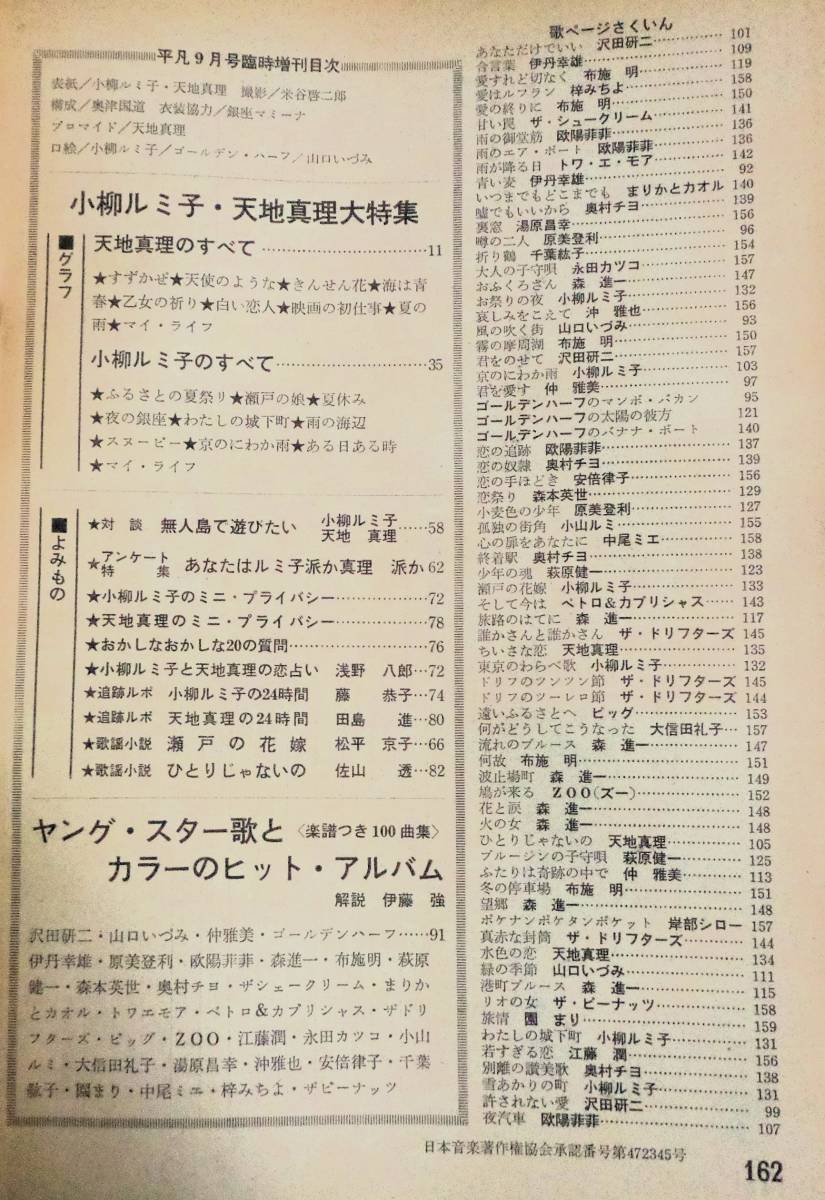 平凡9月号臨時増刊目次
表紙/小柳ルミ子・天地真理 撮影/米谷啓二郎
構成/奥津国道 衣装協力/銀座マミーナ
ブロマイド/天地真理
口絵/小柳ルミ子/ゴールデン・ハーフ/山口いづみ
小柳ルミ子・天地真理大特集
■グラフ
天地真理のすべて…………11
★すずかぜ★天使のような★きんせん花★海は青
春★乙女の祈り★白い恋人★映画の初仕事★夏の
雨★マイ・ライフ
小柳ルミ子のすべて…………35
★ふるさとの夏祭り★瀬戸の娘★夏休み
★夜の銀座★わたしの城下町★雨の海辺
★スヌーピー★京のにわか雨★ある日ある時
★マイ・ライフ
■よみもの
★対談 無人島で遊びたい 小柳ルミ子 天地 真理……58
★アンケート特集 あなたはルミ子派か真理 派か62
★小柳ルミ子のミニ・プライバシー…………72
★天地真理のミニ・プライバシー…………78
★おかしなおかしな20の質問…………76
★小柳ルミ子と天地真理の恋占い 浅野 八郎…72
★追跡ルポ 小柳ルミ子の24時間 藤 恭子…74
★追跡ルポ 天地真理の24時間 田島 進…80
★歌謡小説 瀬戸の花嫁 松平 京子…66
★歌謡小説 ひとりじゃないの 佐山 透…82
ヤング・スター歌と〈楽譜つき100曲集〉
カラーのヒット・アルバム
解説 伊藤 強
沢田研二・山口いづみ・仲雅美・ゴールデンハーフ……91
伊丹幸雄・原美登利・欧陽菲菲・森進一・布施明・萩原
健一・森本英世・奥村チヨ・ザシュークリーム・まりか
とカオル・トワエモア・ペトロ&カプリシャス・ザドリ
フターズ・ビッグ・ZOO・江藤潤・永田カツコ・小山
ルミ・大信田礼子・湯原昌幸・沖雅也・安倍律子・千葉
紘子・園まり・中尾ミエ・梓みちよ・ザピーナッツ
歌ページさくいん
あなただけでいい 沢田研二…………101
合言葉 伊丹幸雄…………109
愛すれど切なく 布施 明…………119
愛はルフラン 梓みちよ…………158
愛の終りに 布施 明…………150
甘い罠 ザ・シュークリーム…………141
雨の御堂筋 欧陽菲菲…………136
雨のエア・ポート 欧陽菲菲…………136
雨が降る日 トワ・エ・モア…………142
青い麦 伊丹幸雄…………92
いつまでもどこまでも まりかとカオル 140
嘘でもいいから 奥村チヨ…………139
裏窓 湯原昌幸…………156
噂の二人 原美登利…………96
折り鶴 千葉紘子…………154
大人の子守唄 永田カツコ…………157
おふくろさん 森 進一…………147
お祭りの夜 小柳ルミ子…………132
哀しみをこえて 沖 雅也…………156
風の吹く街 山口いづみ…………93
霧の摩周湖 布施 明…………150
君をのせて 沢田研二…………157
京のにわか雨 小柳ルミ子…………103
君を愛す 仲 雅美…………97
ゴールデンハーフのマンボ・バカン 95
ゴールデンハーフの太陽の彼方 121
ゴールデンハーフのバナナ・ボート 140
恋の追跡 欧陽菲菲…………137
恋の奴隷 奥村チヨ…………139
恋の手ほどき 安倍律子…………156
恋祭り 森本英世…………129
小麦色の少年 原美登利…………127
孤独の街角 小山ルミ…………155
心の扉をあなたに 中尾ミエ…………158
終着駅 奥村チヨ…………138
少年の魂 萩原健一…………123
瀬戸の花嫁 小柳ルミ子…………133
そして今は ペトロ&カプリシャス……143
旅路のはてに 森 進一…………117
誰かさんと誰かさん ザ・ドリフターズ 145
ちいさな恋 天地真理…………135
東京のわらべ歌 小柳ルミ子…………132
ドリフのツンツン節 ザ・ドリフターズ 145
ドリフのツーレロ節 ザ・ドリフターズ 144
遠いふるさとへ ビッグ…………153
何がどうしてこうなった 大信田礼子… 157
流れのブルース 森 進一…………147
何故 布施 明…………151
波止場町 森 進一…………149
鳩が来る ZOO(ズー)…………152
花と涙 森 進一…………148
火の女 森 進一…………148
ひとりじゃないの 天地真理…………105
ブルージンの子守唄 萩原健一…………125
ふたりは奇跡の中で 仲 雅美…………113
冬の停車場 布施 明…………151
望郷 森 進一…………148
ポケナンポケタンポケット 岸部シロー 157
真赤な封筒 ザ・ドリフターズ…………144
水色の恋 天地真理…………134
緑の季節 山口いづみ…………111
港町ブルース 森 進一…………115
リオの女 ザ・ピーナッツ…………158
旅情 園 まり…………159
わたしの城下町 小柳ルミ子…………131
若すぎる恋 江藤 潤…………156
別離の讃美歌 奥村チヨ…………138
雪あかりの町 小柳ルミ子…………131
許されない愛 沢田研二…………99
夜汽車 欧陽菲菲…………107
日本音楽著作権協会承認番号第472345号
162